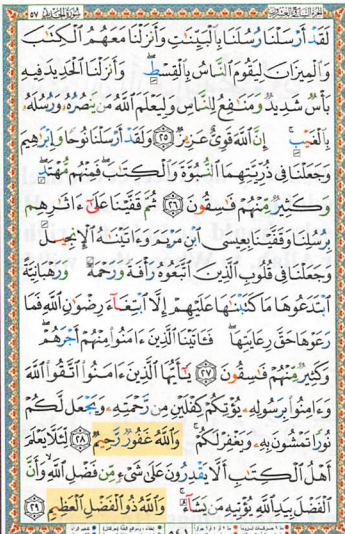 سُورَةُ الحَدِيدِ ٥٧
لَقَدْ أَرْسَلْنَا رُسُلَنَا بِالْبَيِّنَاتِ وَأَنزَلْنَا مَعَهُمُ الْكِتَابَ
وَالْمِيزَانَ لِيَقُومَ النَّاسُ بِالْقِسْطِ ۖ وَأَنزَلْنَا الْحَدِيدَ فِيهِ
بَأْسٌ شَدِيدٌ وَمَنَافِعُ لِلنَّاسِ وَلِيَعْلَمَ اللَّهُ مَن يَنصُرُهُ وَرُسُلَهُ
بِالْغَيْبِ ۚ إِنَّ اللَّهَ قَوِيٌّ عَزِيزٌ ٢٥ وَلَقَدْ أَرْسَلْنَا نُوحًا وَإِبْرَاهِيمَ
وَجَعَلْنَا فِي ذُرِّيَّتِهِمَا النُّبُوَّةَ وَالْكِتَابَ ۖ فَمِنْهُم مُّهْتَدٍ ۖ
وَكَثِيرٌ مِّنْهُمْ فَاسِقُونَ ٢٦ ثُمَّ قَفَّيْنَا عَلَىٰ ءَاثَارِهِم
بِرُسُلِنَا وَقَفَّيْنَا بِعِيسَى ابْنِ مَرْيَمَ وَءَاتَيْنَاهُ الْإِنجِيلَ
وَجَعَلْنَا فِي قُلُوبِ الَّذِينَ اتَّبَعُوهُ رَأْفَةً وَرَحْمَةً ۚ وَرَهْبَانِيَّةً
ابْتَدَعُوهَا مَا كَتَبْنَاهَا عَلَيْهِمْ إِلَّا ابْتِغَاءَ رِضْوَانِ اللَّهِ فَمَا
رَعَوْهَا حَقَّ رِعَايَتِهَا ۖ فَـَٔاتَيْنَا الَّذِينَ ءَامَنُوا مِنْهُمْ أَجْرَهُمْ ۖ
وَكَثِيرٌ مِّنْهُمْ فَاسِقُونَ ٢٧ يَا أَيُّهَا الَّذِينَ ءَامَنُوا اتَّقُوا اللَّهَ
وَءَامِنُوا بِرَسُولِهِ يُؤْتِكُمْ كِفْلَيْنِ مِن رَّحْمَتِهِ وَيَجْعَل لَّكُمْ
نُورًا تَمْشُونَ بِهِ وَيَغْفِرْ لَكُمْ ۚ وَاللَّهُ غَفُورٌ رَّحِيمٌ ٢٨ لِّئَلَّا يَعْلَمَ
أَهْلُ الْكِتَابِ أَلَّا يَقْدِرُونَ عَلَىٰ شَيْءٍ مِّن فَضْلِ اللَّهِ ۙ وَأَنَّ
الْفَضْلَ بِيَدِ اللَّهِ يُؤْتِيهِ مَن يَشَاءُ ۚ وَاللَّهُ ذُو الْفَضْلِ الْعَظِيمِ ٢٩